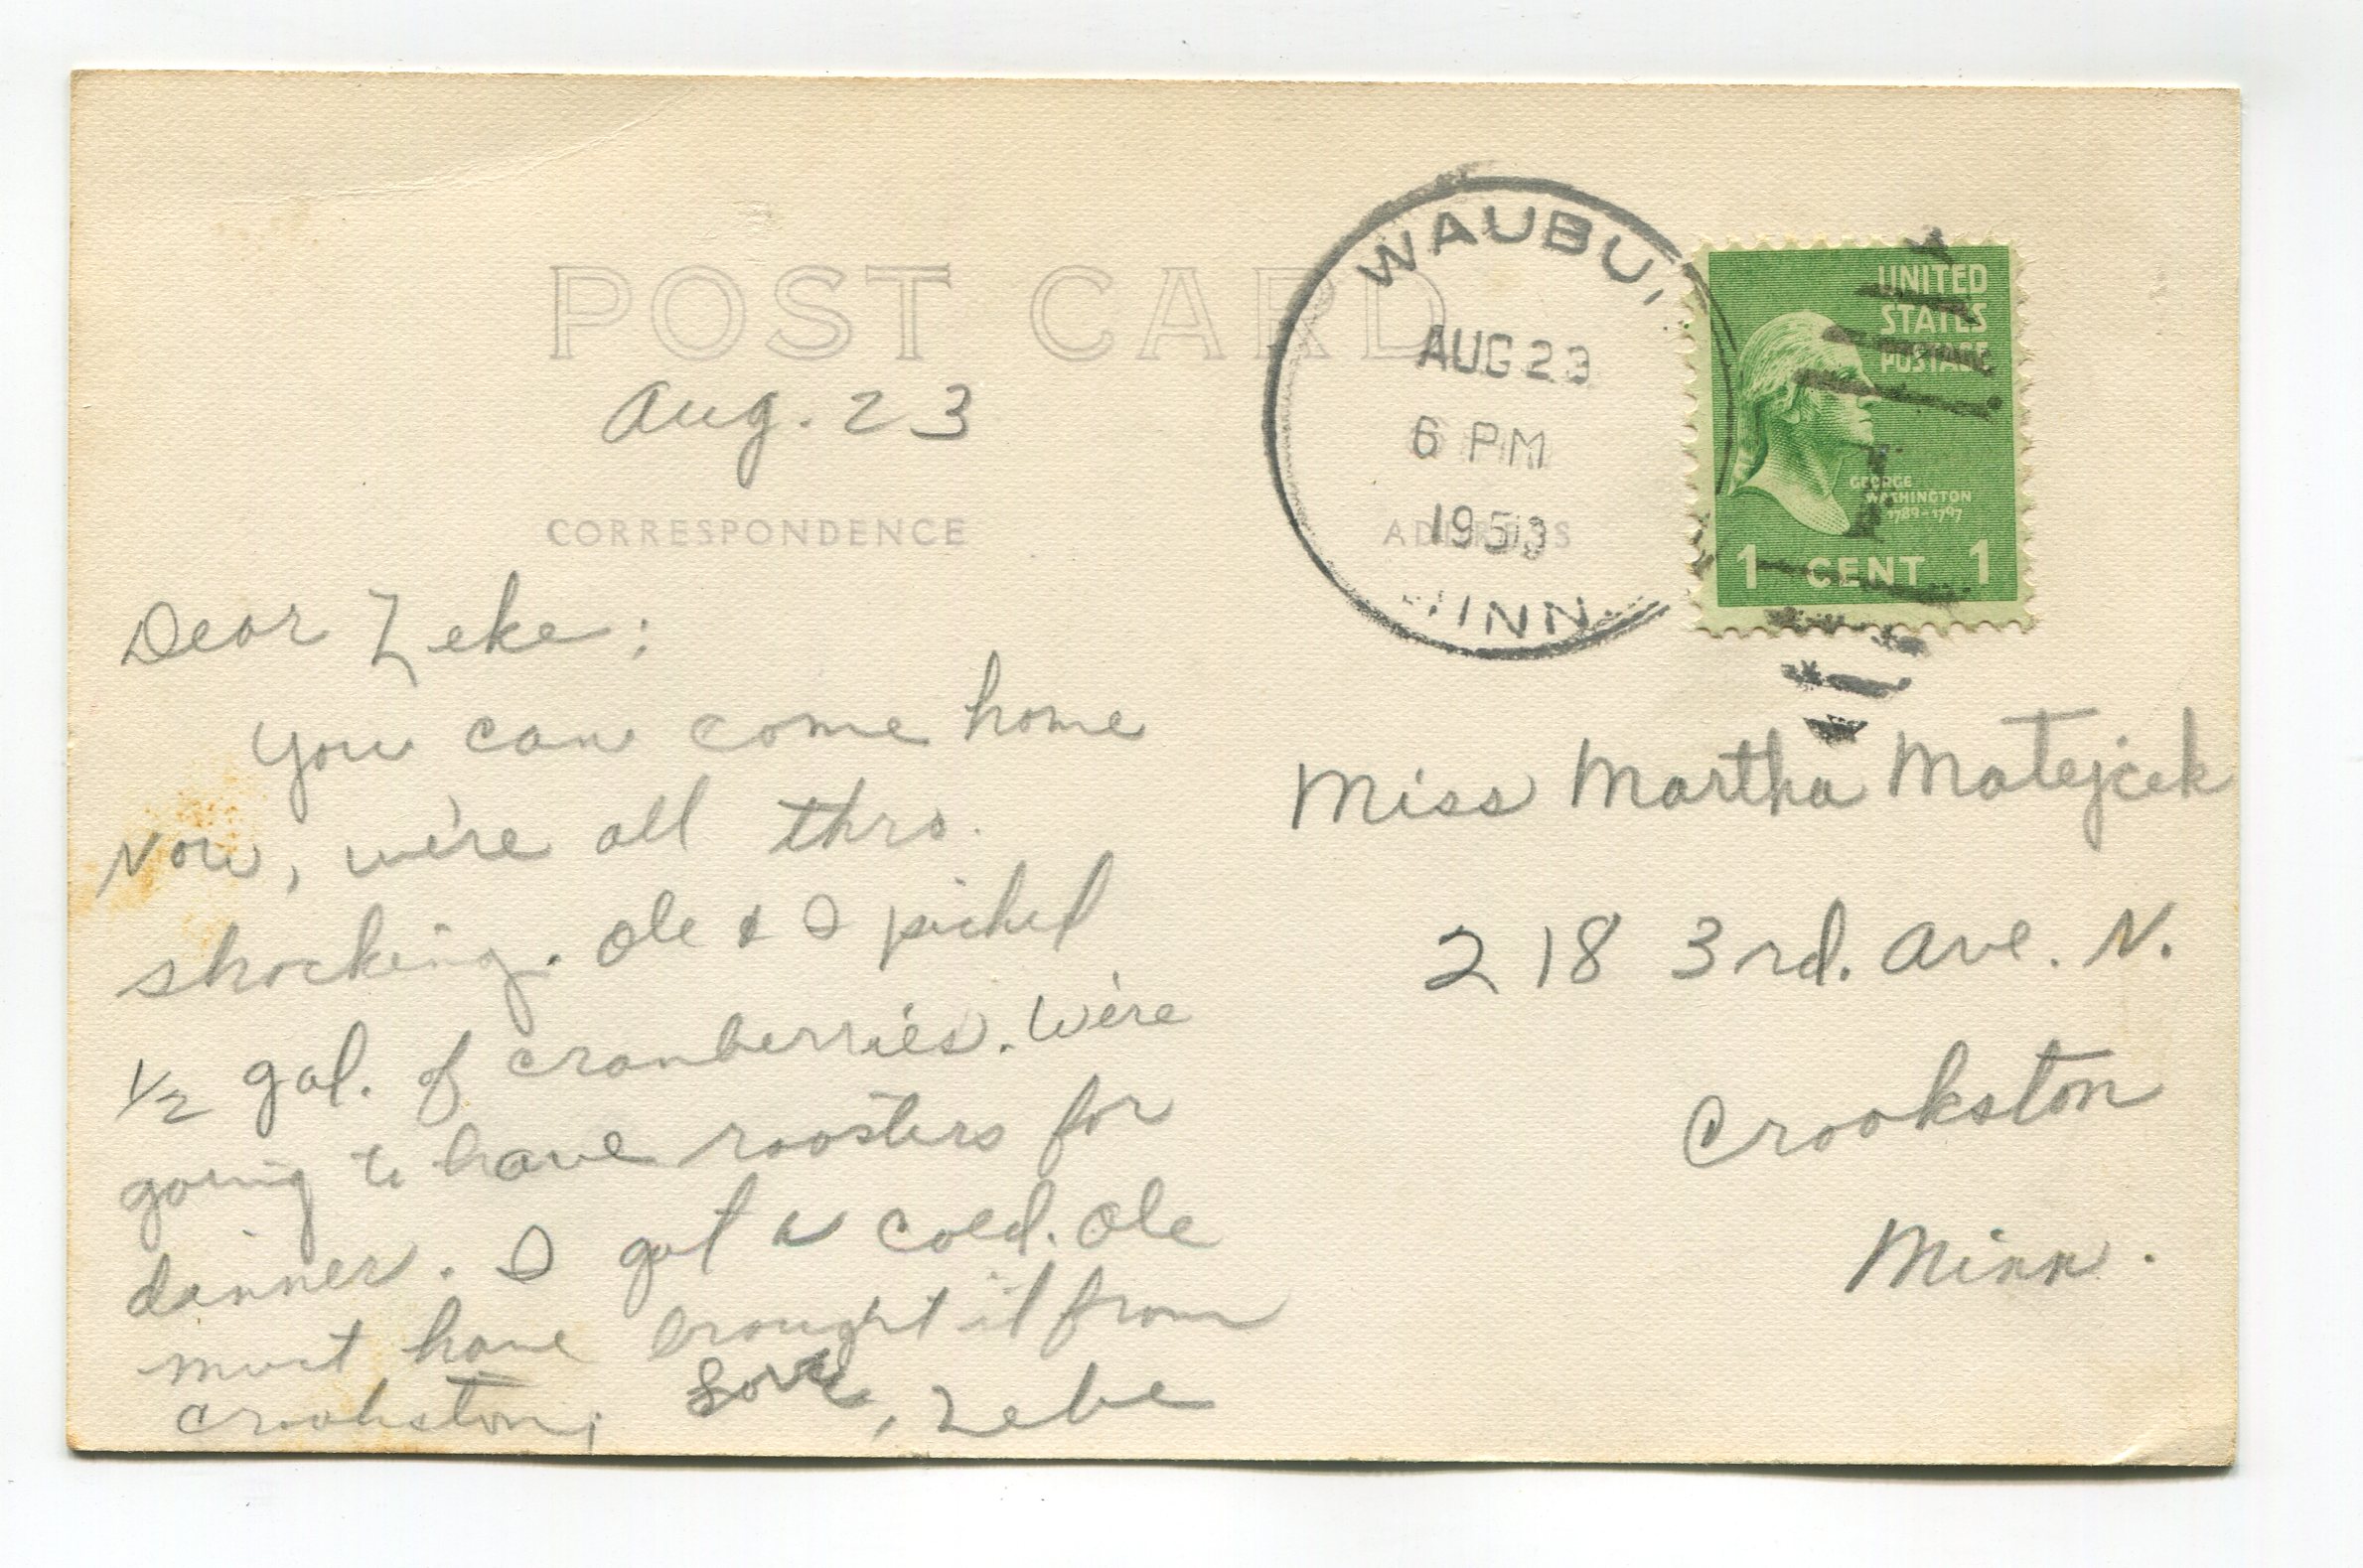 POST CARD
Aug. 23
CORRESPONDENCE
Dear Zeke:
You can come home
Now, we're all thro
shocking. Ole & I picked
1/2 gal. of cranberries. We're
going to have roosters for
dinner. I got a cold. Ole
must have brought it from
Crookston;
Love, Zebe
WAUBU
AUG 23
6 PM
1950
MINN.
ADDRESS
UNITED
STATES
POSTAGE
GEORGE
WASHINGTON
1789-1797
1 CENT 1
Miss Martha Matejcek
218 3rd. Ave. N.
Crookston
Minn.